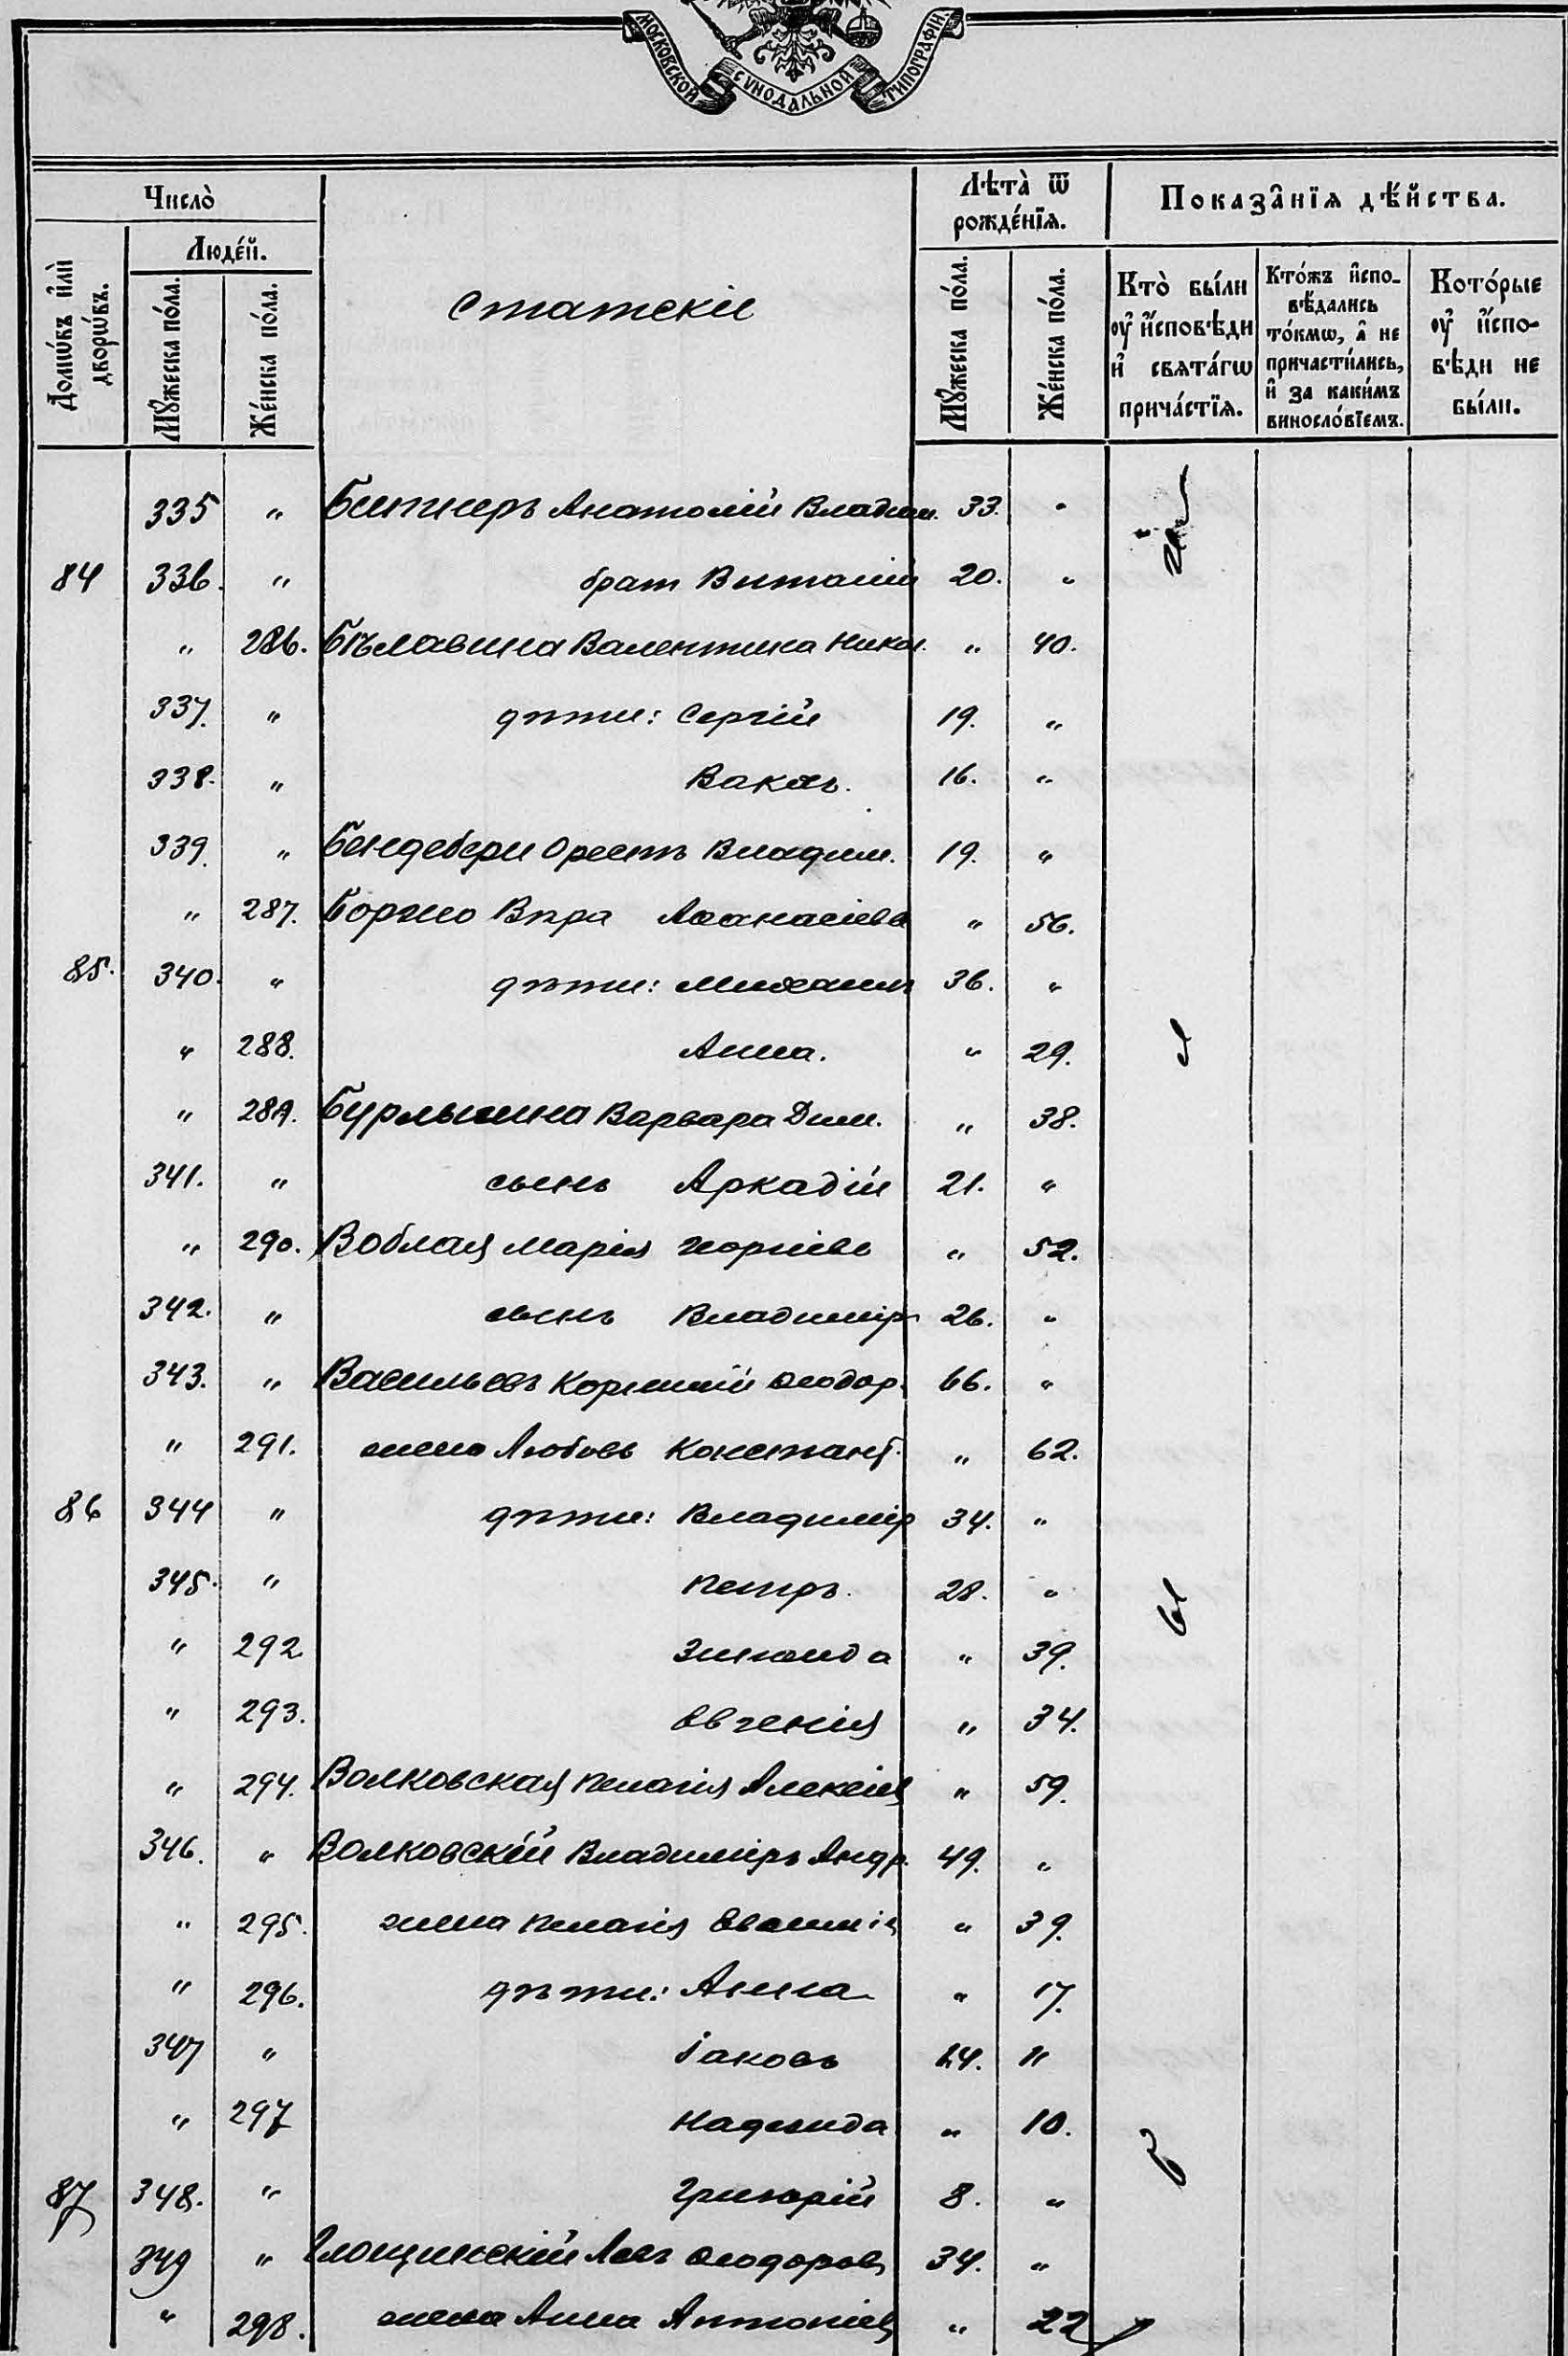 МОСКОВСКОЙ СѴНОДАЛЬНОЙ ТИПОГРАФІИ
Число̀
Людéй.
Домѡ́въ и҆лѝ дворѡ́въ.
Мꙋ́жеска по́ла.
Же́нска по́ла.
Статскіе
Лѣта̀ ѿ рожде́нїѧ.
Мꙋ́жеска по́ла.
Же́нска по́ла.
Показа̑нїѧ дѣ́йства.
Кто̀ бы́ли
ᲂу҆ и҆́сповѣди
и҆ свѧта́гѡ
прича́стїѧ.
Кто́жъ и҆спо-
вѣ́дались
то́кмѡ, а҆ не
причасти́лись,
и҆ за каки́мъ
виносло́вїемъ.
Кото́рые
ᲂу҆ и҆́спо-
вѣди не
бы́ли.
335 " Битнеръ Анатолій Владим. 33. "
84 336. " брат Виталій 20. "
" 286. Бѣлавина Валентина Никол. " 40.
337. " дѣти: Сергій 19. "
338. " 16. "
339. " Бендебери Орестъ Владим. 19. "
" 287. Вѣра Аѳанасіева " 56.
85. 340. " дѣти: Михаилъ 36. "
" 288. Анна. " 29.
" 289. Бурлыкина Варвара Дим. " 38.
341. " сынъ Аркадій 21. "
" 290. Воблая Марія Георгіев " 52.
342. " сынъ Владиміръ 26. "
343. " Васильевъ Корнилій Ѳеодор. 66. "
" 291. жена Любовь Констант. " 62.
86 344 " дѣти: Владимір 34. "
345. " Петръ. 28. "
" 292 Зинаида " 39.
" 293. Евгенія " 34.
" 294. Волковская Пелагія Алексіев " 59.
346. " Волковскій Владиміръ Андр. 49. "
" 295. жена Пелагія " 39.
" 296. дѣти: Анна " 17.
347 " Іаковъ 14. "
" 297 Надежда " 10.
87 348. " Григорій 8. "
349 " Глощинскій Левъ Ѳеодоров 34. "
" 298. жена Анна Антоніев " 22